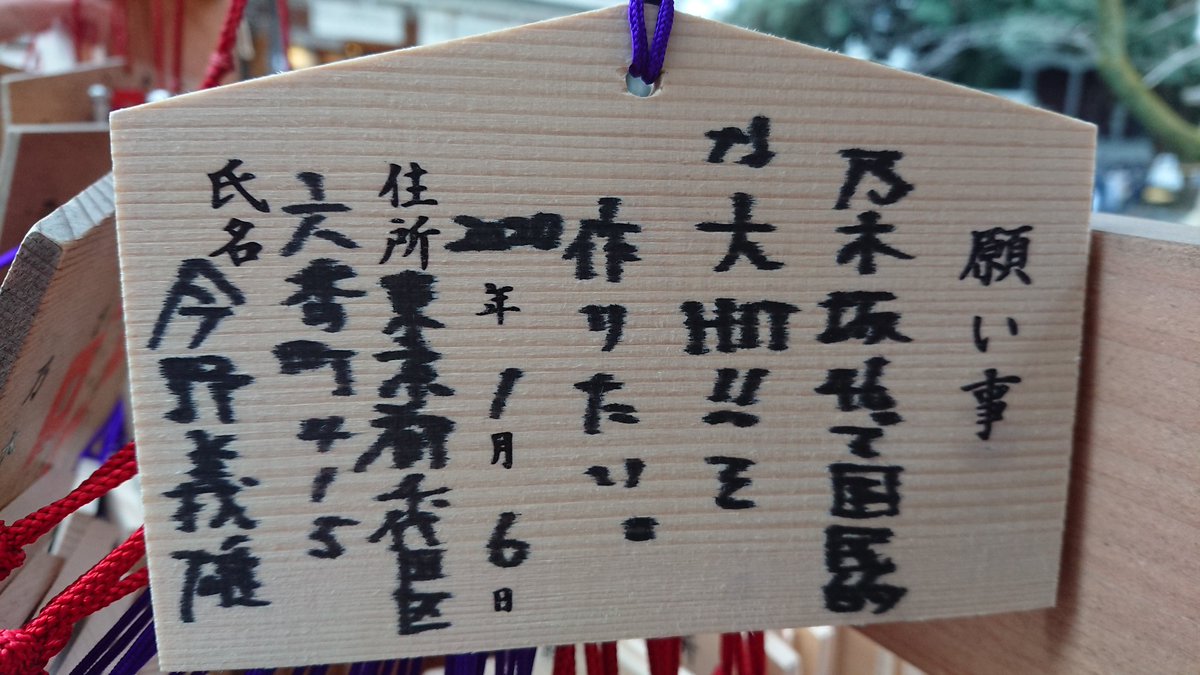 願い事
乃木坂46で国民的
な大HIT!!を
作りたい。
2020年1月6日
住所 東京都千代田区
六番町4-5
氏名 今野義雄